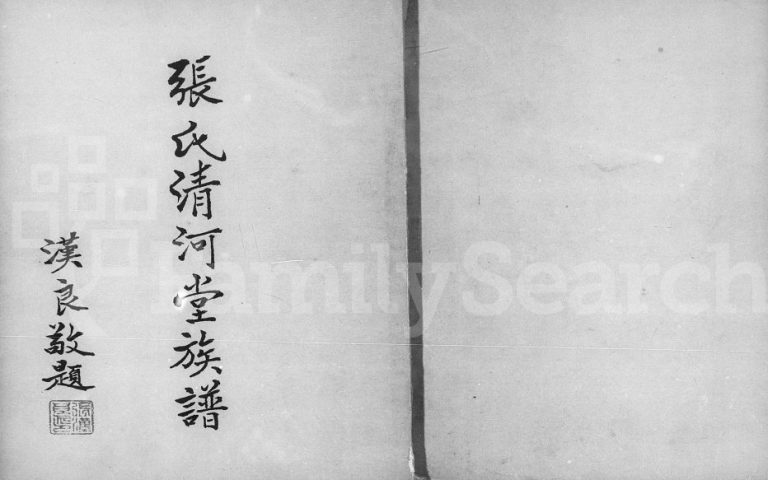 張氏清河堂族譜
漢良敬題
FamilySearch